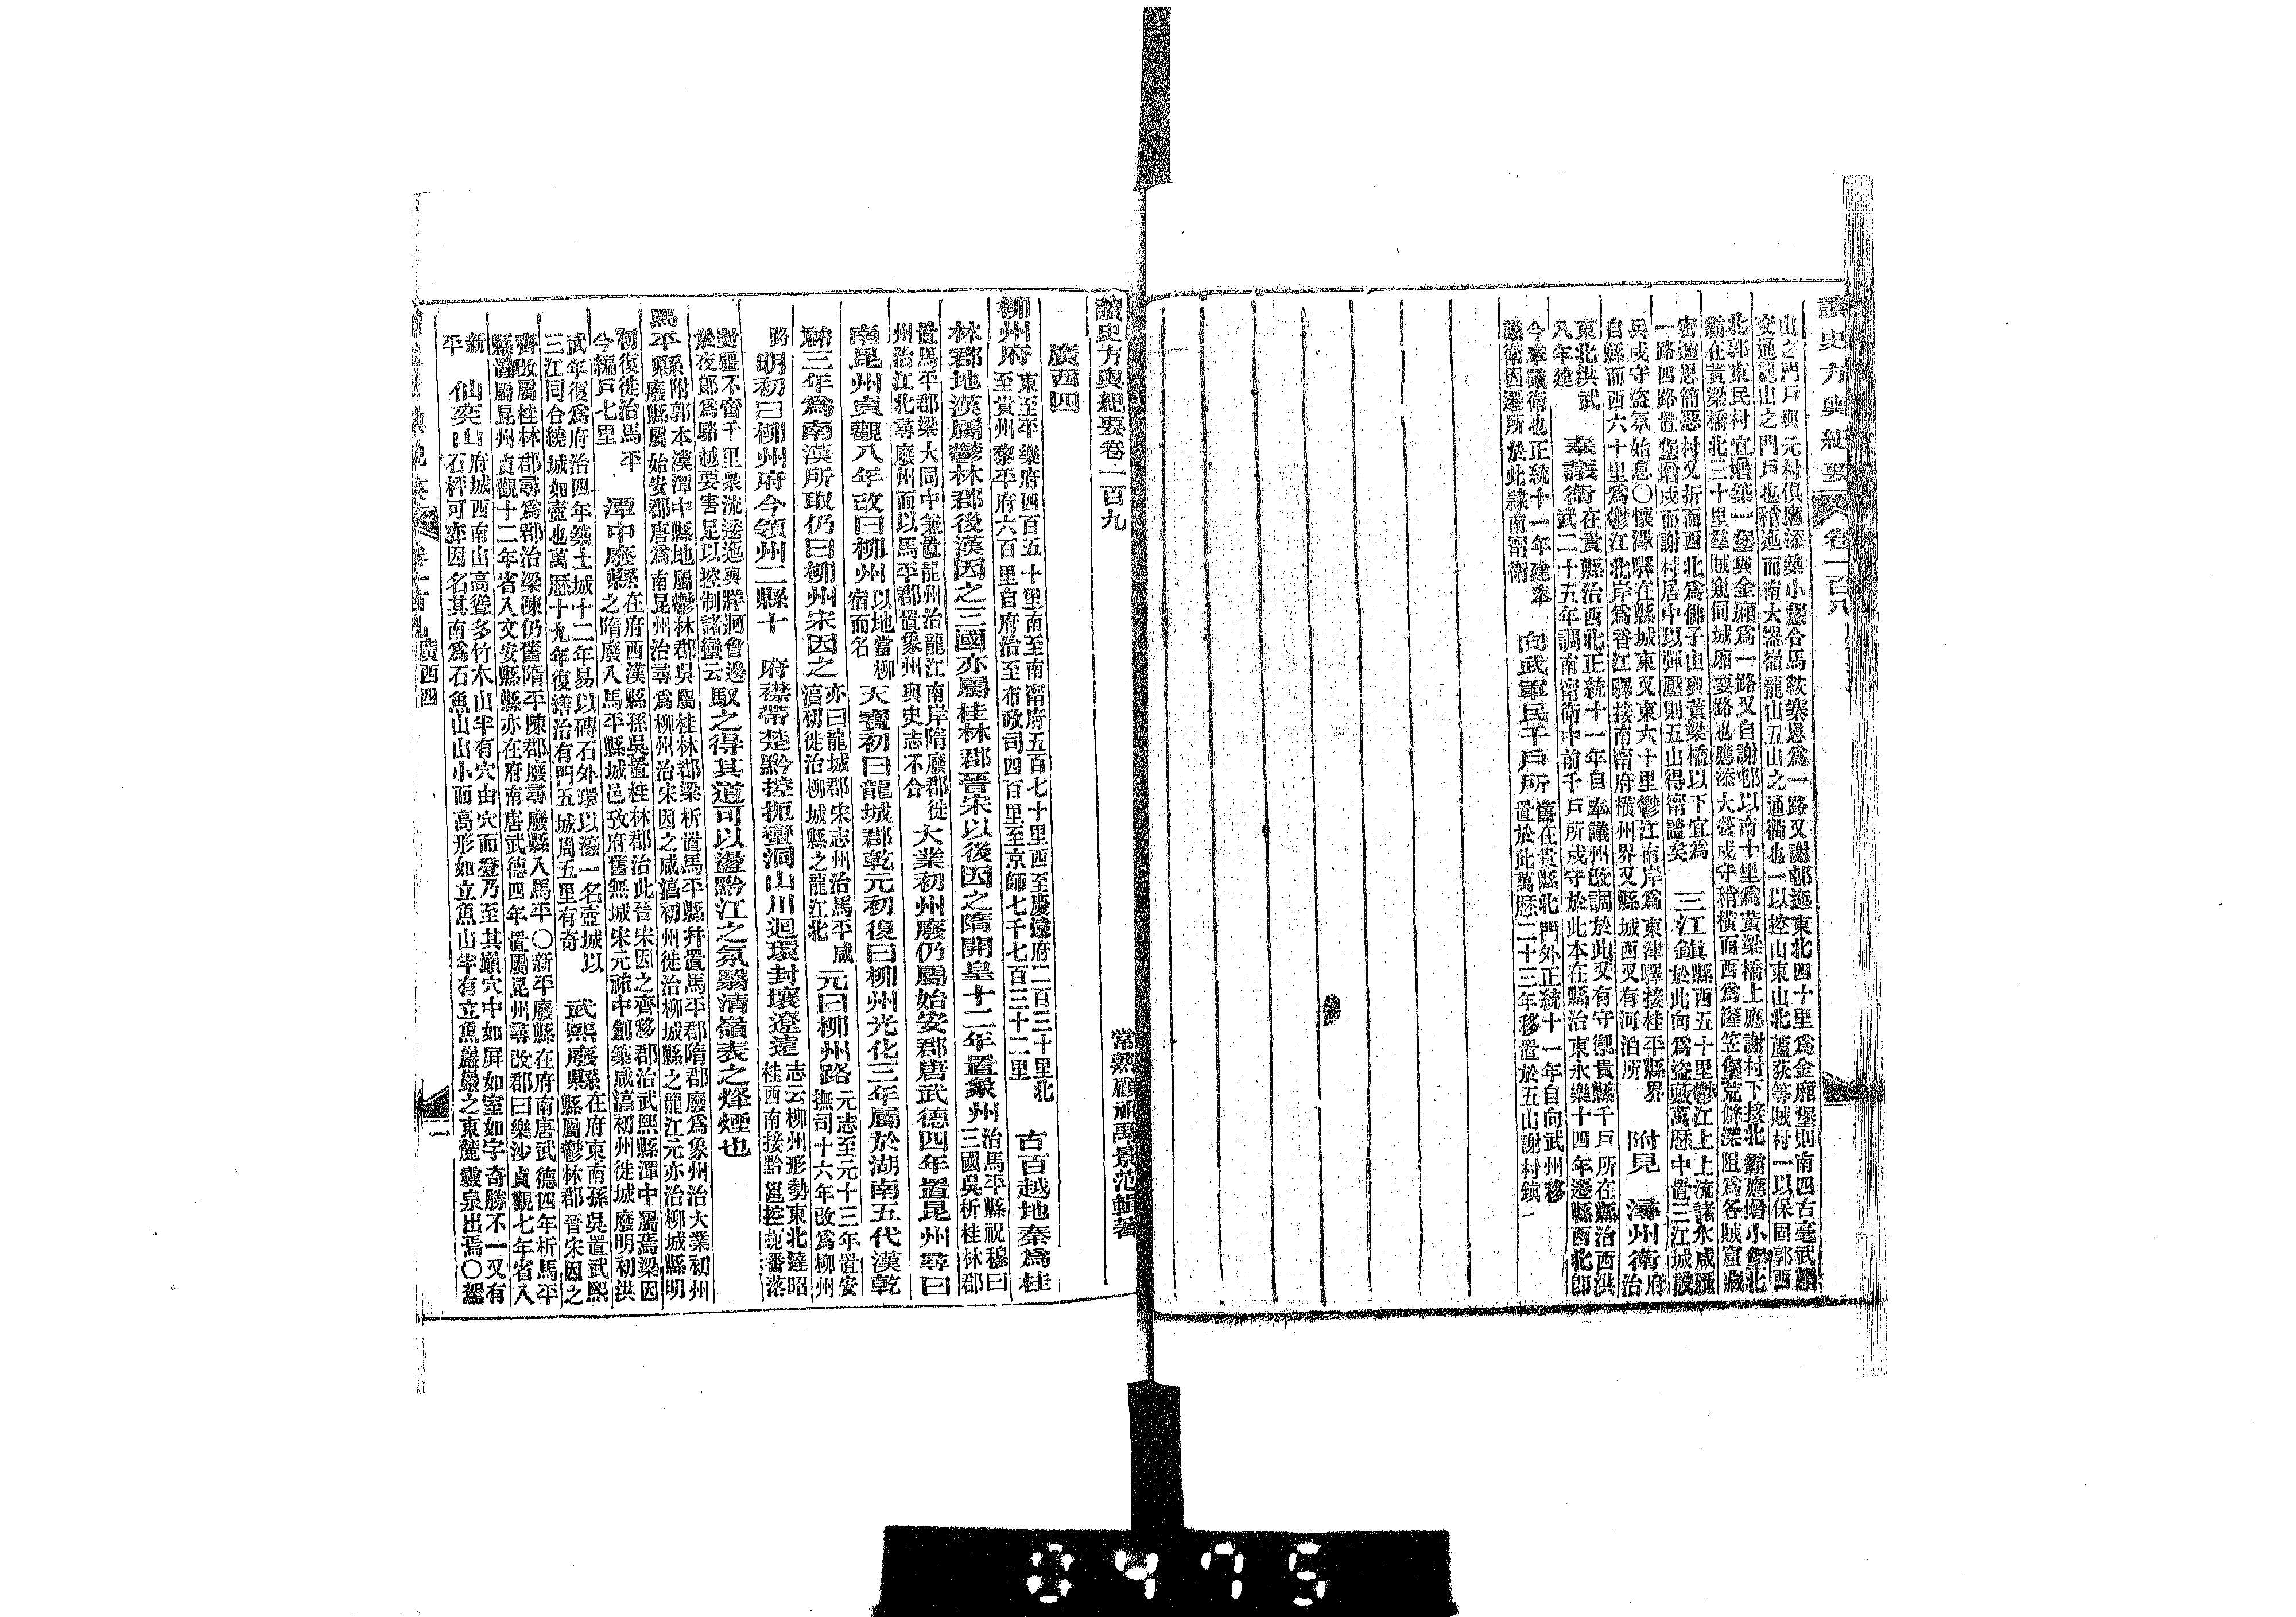 讀史方輿紀要 卷一百八
山之門戶與元村俱應添築小堡合馬鞍寨恩爲一路又謝邨迤東北四十里爲金廂堡則南四古毫武賴
交通龍山之門戶也稍迤而南大器嶺龍山五山之通衢也一以控山東山北蘆荻等賊村一以保固郭西
北郭東民村宜增築一堡與金廂爲一路又自謝邨以南十里爲黃梁橋上應謝村下接北霸應增小堡北
霸在黃梁橋北三十里羣賊窺伺城廂要路也應添大營戍守稍橫而西爲籬笠堡荒僻深阻爲各賊窟藏
密邇思簡惡村又折而西北爲佛子山與黃梁橋以下宜爲
一路四路置堡增戍而謝村居中以彈壓則五山得甯謐矣
三江鎮縣西五十里鬱江上上流諸水咸匯
於此向爲盜藪萬歷中置三江城設
兵戍守盜氛始息○懷澤驛在縣城東又東六十里鬱江南岸爲東津驛接桂平縣界
自縣而西六十里爲鬱江北岸爲香江驛接南甯府橫州界又縣城西又有河泊所
附見
潯州衛府治
東北洪武
八年建
奉議衛在貴縣治西北正統十一年自奉議州改調於此又有守禦貴縣千戶所在縣治西洪
武二十五年調南甯衛中前千戶所戍守於此本在縣治東永樂十四年遷縣西北卽
今奉議衛也正統十一年建奉
議衛因遷所於此隷南甯衛
向武軍民千戶所舊在貴縣北門外正統十一年自向武州移
置於此萬歷二十三年移置於五山謝村鎮
讀史方輿紀要卷一百九
常熟顧祖禹景范輯著
廣西四
柳州府東至平樂府四百五十里南至南甯府五百七十里西至慶遠府二百三十里北
至貴州黎平府六百里自府治至布政司四百里至京師七千七百三十二里
古百越地秦爲桂
林郡地漢屬鬱林郡後漢因之三國亦屬桂林郡晉宋以後因之隋開皇十二年置象州治馬平縣祝穆曰
三國吳析桂林郡
置馬平郡梁大同中兼置龍州治龍江南岸隋廢郡徙
州治江北尋廢州而以馬平郡置象州與史志不合
大業初州廢仍屬始安郡唐武德四年置昆州尋曰
南昆州貞觀八年改曰柳州以地當柳
宿而名
天寶初曰龍城郡乾元初復曰柳州光化三年屬於湖南五代漢乾
祐三年爲南漢所取仍曰柳州宋因之亦曰龍城郡宋志州治馬平咸
淳初徙治柳城縣之龍江北
元曰柳州路元志至元十三年置安
撫司十六年改爲柳州
路
明初曰柳州府今領州二縣十
府襟帶楚黔控扼蠻洞山川迴環封壤遼遠志云柳州形勢東北達昭
桂西南接黔邕控扼番落
對疆不啻千里衆流逶迤與牂牁會邊
於夜郎爲駱越要害足以控制諸蠻云
馭之得其道可以盪黔江之氛翳清嶺表之烽煙也
馬平縣附郭本漢潭中縣地屬鬱林郡吳屬桂林郡梁析置馬平縣幷置馬平郡隋郡廢爲象州治大業初州
廢縣屬始安郡唐爲南昆州治尋爲柳州治宋因之咸淳初州徙治柳城縣之龍江元亦治柳城縣明
初復徙治馬平
今編戶七里
潭中廢縣在府西漢縣孫吳置桂林郡治此晉宋因之齊移郡治武熙縣潭中屬焉梁因
之隋廢入馬平縣城邑攷府舊無城宋元祐中創築咸淳初州徙城廢明初洪
武年復爲府治四年築土城十二年易以磚石外環以濠一名壺城以
三江同合繞城如壺也萬歷十九年復繕治有門五城周五里有奇
武熙廢縣在府東南孫吳置武熙
縣屬鬱林郡晉宋因之
齊改屬桂林郡尋爲郡治梁陳仍舊隋平陳郡廢尋廢縣入馬平○新平廢縣在府南唐武德四年析馬平
縣置屬昆州貞觀十二年省入文安縣縣亦在府南唐武德四年置屬昆州尋改郡曰樂沙貞觀七年省入
新
平
仙奕山府城西南山高聳多竹木山半有穴由穴而登乃至其巔穴中如屏如室如宇奇勝不一又有
石枰可奕因名其南爲石魚山山小而高形如立魚山半有立魚巖巖之東麓靈泉出焉○駕
卷一百九 廣西四
一
0475